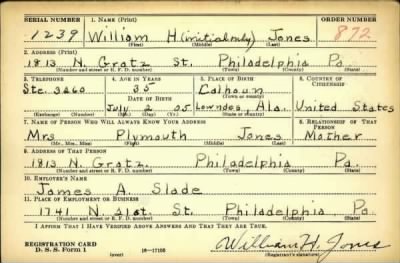 SERIAL NUMBER 1. NAME (Print) ORDER NUMBER
1239 William H (initial only) Jones 872
(First) (Middle) (Last)
2. ADDRESS (Print)
1813 N. Gratz St. Philadelphia Pa.
(Number and street or R. F. D. number) (Town) (County) (State)
3. TELEPHONE 4. AGE IN YEARS 5. PLACE OF BIRTH 6. COUNTRY OF CITIZENSHIP
Ste. 3260 35 Calhoun
DATE OF BIRTH (Town or county)
July 2 05 Lowndes, Ala. United States
(Exchange) (Number) (Mo.) (Day) (Yr.) (State or country)
7. NAME OF PERSON WHO WILL ALWAYS KNOW YOUR ADDRESS 8. RELATIONSHIP OF THAT PERSON
Mrs Plymouth Jones Mother
(Mr., Mrs., Miss) (First) (Middle) (Last)
9. ADDRESS OF THAT PERSON
1813 N. Gratz. Philadelphia Pa.
(Number and street or R. F. D. number) (Town) (County) (State)
10. EMPLOYER'S NAME
James A. Slade
11. PLACE OF EMPLOYMENT OR BUSINESS
1741 N 21st. St. Philadelphia, Pa.
(Number and street or R. F. D. number) (Town) (County) (State)
I AFFIRM THAT I HAVE VERIFIED ABOVE ANSWERS AND THAT THEY ARE TRUE.
REGISTRATION CARD
D. S. S. Form 1 16—17105 William H. Jones
(Registrant's signature)